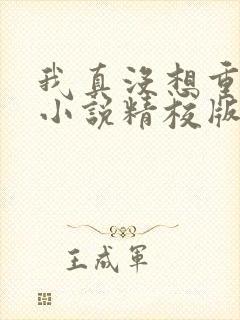 我真没想重
小说精校版
王成军